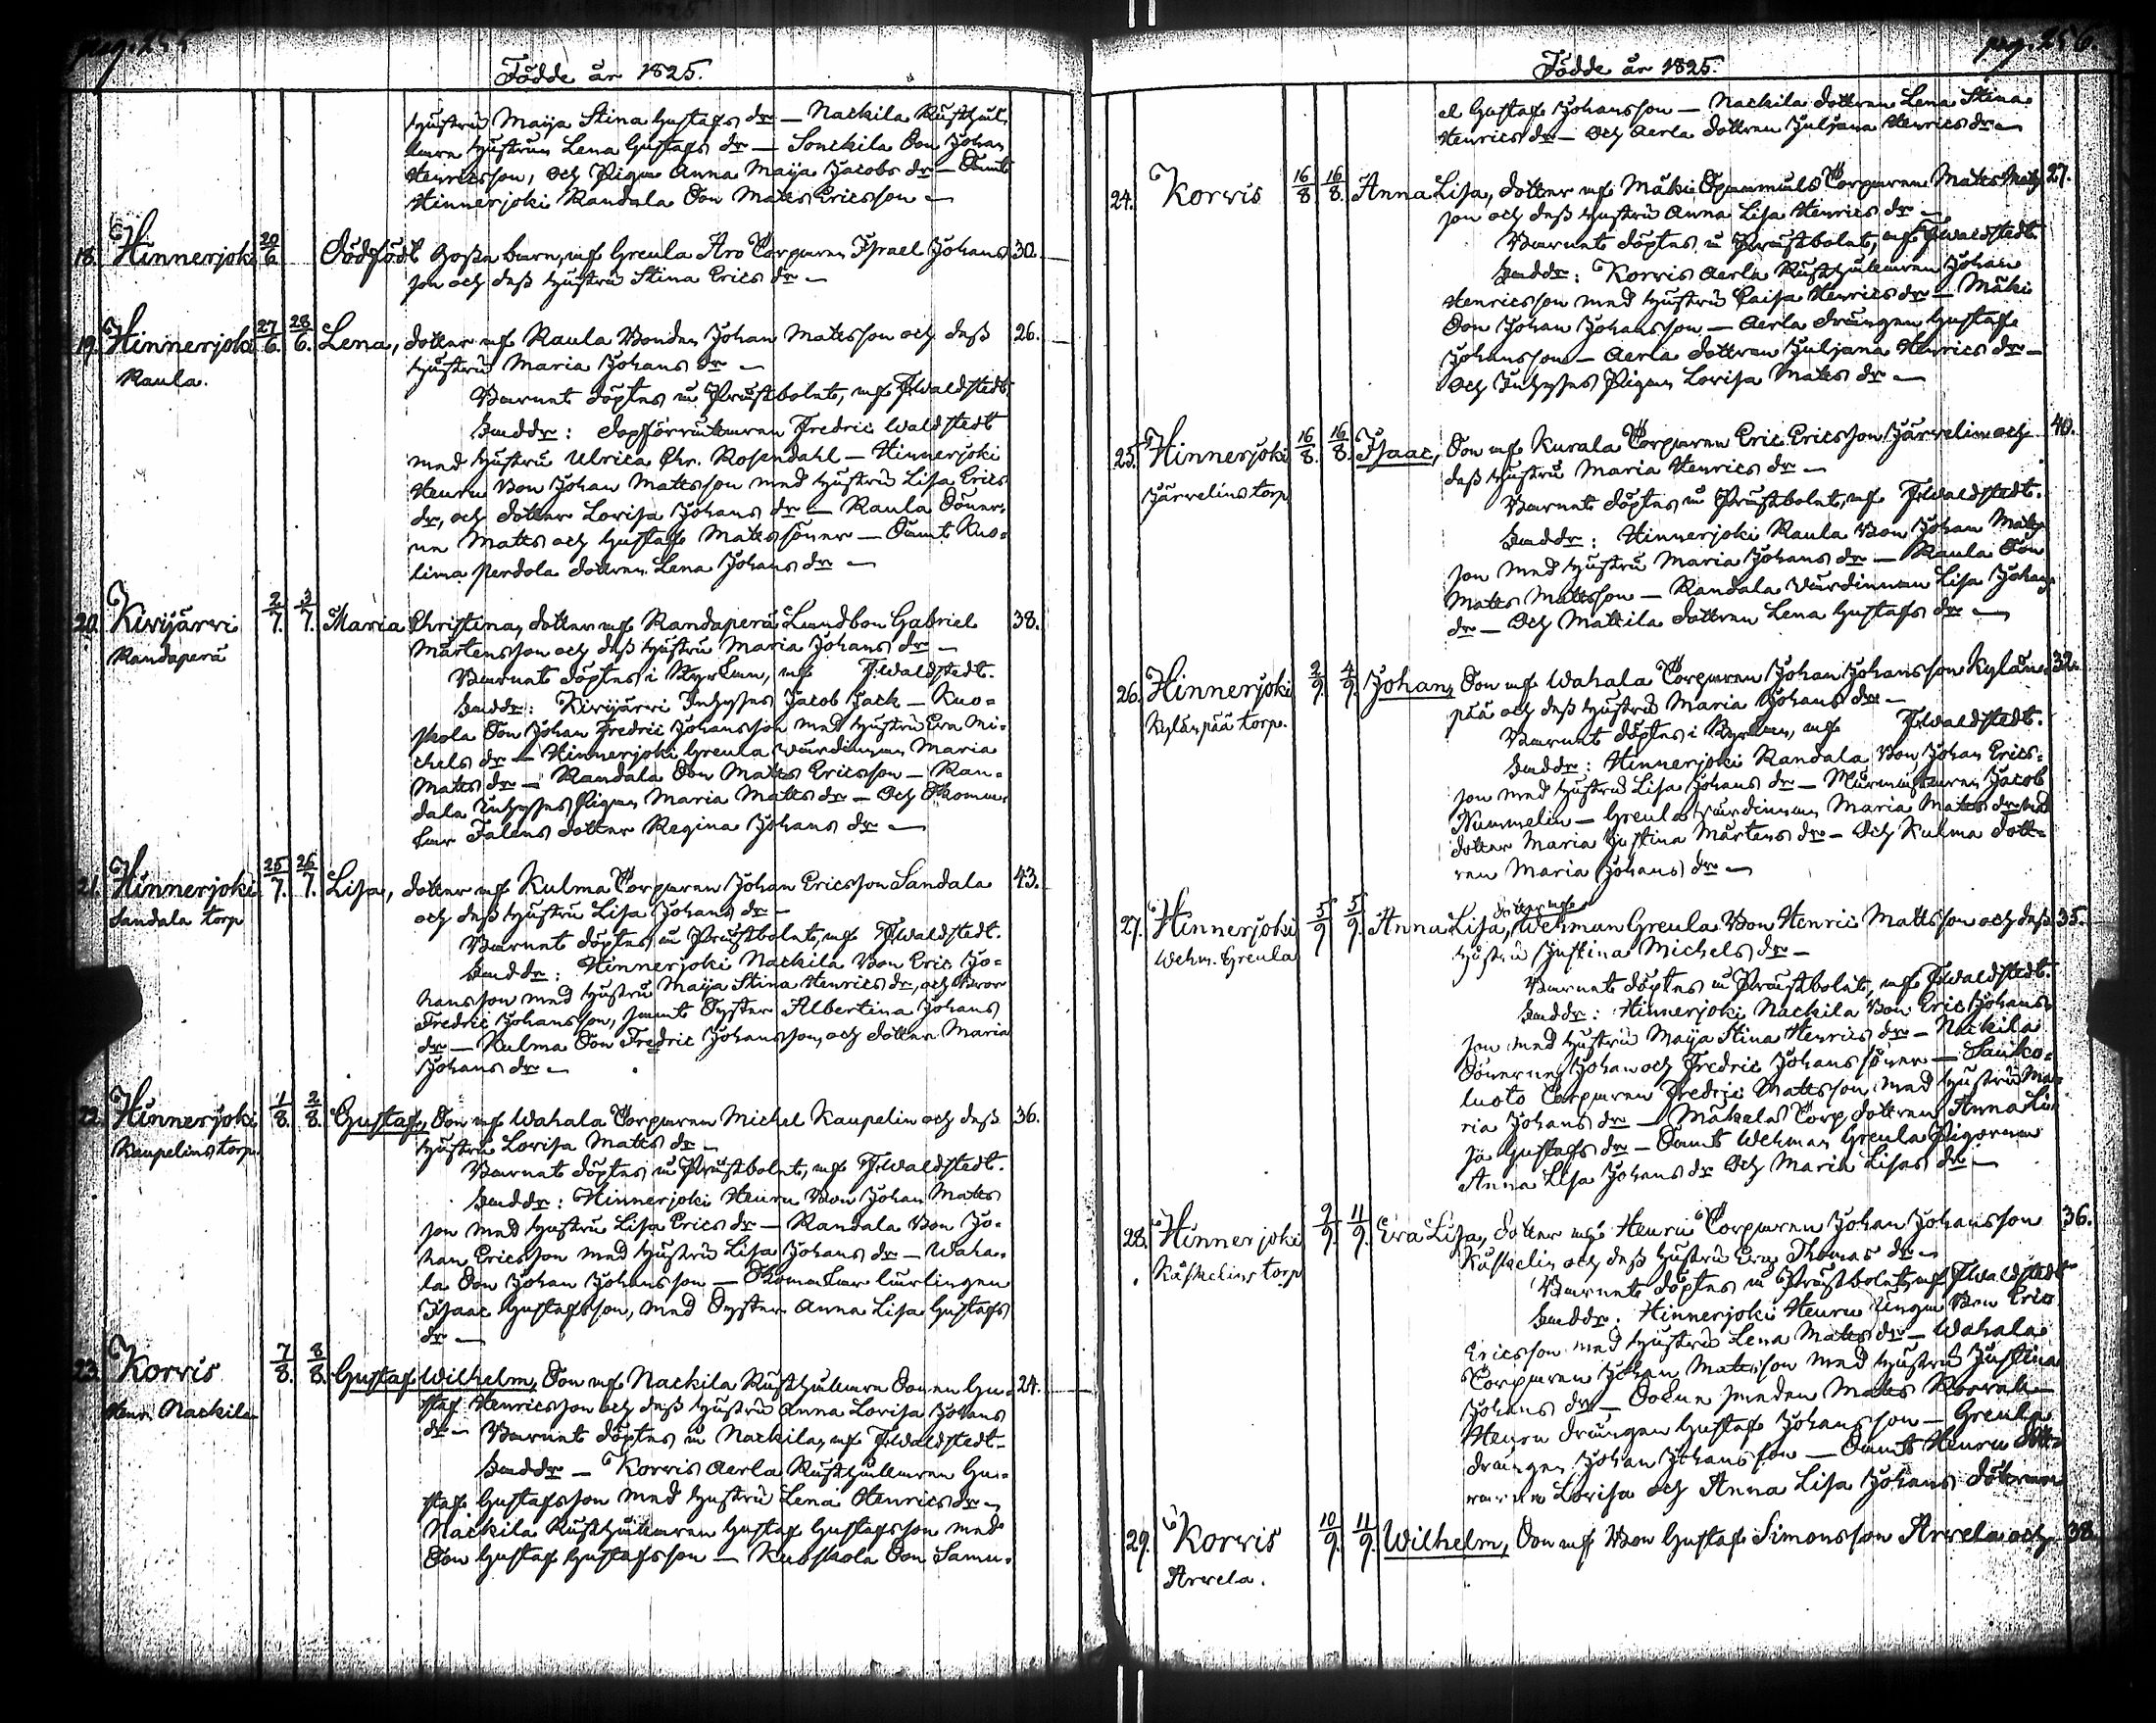 pag. 255
Födde år 1825.
hustru Maija Stina Gustafs dr — Nackila Rusthål-
laren hustrun Lena Gustafs dr — Sonckila Son Johan
Henricsson, och Pigan Anna Maija Jacobs dr — Samt
Hinnerjoki Randala Son Matts Ericsson —
18. Hinnerjoki 20/6 Dödfödt Gosse barn, af Greula Aro Torparen Israel Johans 30.
son och dess hustru Stina Erics dr —
19. Hinnerjoki 27/6. 28/6. Lena, dotter af Raula Bonden Johan Mattsson och dess 26.
Raula. hustru Maria Johans dr —
Barnet döptes i Prästbolet, af F. Waldstedt.
Faddr: Fredric Waldstedt
med hustru Ulrica Chr. Rosendahl — Hinnerjoki
Heuru Bon Johan Mattsson med hustru Lisa Erics
dr, och dotter Lovisa Johans dr — Raula Söner-
ne Matts och Gustaf Mats söner — Samt Kuo-
lima Perdola dottren Lena Johans dr —
20. Kirijärvi 2/7. 3/7. Maria Christina, dotter af Randaperä Landbon Gabriel 38.
Randaperä Mårtensson och dess hustru Maria Johans dr —
Barnet döptes i Kyrkan, af F. Waldstedt.
Faddr: Kirijärvi Inhyses Jacob Jack — Kuo-
skola Son Johan Fredric Johansson med hustru Eva Mi-
chels dr — Hinnerjoki Greula värdinnan Maria
Matts dr — Randala Son Matts Ericsson — Ran-
dala Inhyses Pigan Maria Matts dr — Och Skoma-
kar Falens dotter Regina Johans dr —
21. Hinnerjoki 25/7. 26/7. Lisa, dotter af Kulma Torparen Johan Ericsson Sandala 43.
Sandala torp och dess hustru Lisa Johans dr —
Barnet döptes i Prästbolet, af F. Waldstedt.
Faddr: Hinnerjoki Nackila Bon Eric Jo-
hansson med hustru Maija Stina Henrics dr, och Bror
Fredric Johansson, samt Syster Albertina Johans
dr — Kulma Son Fredric Johansson, och dotter Maria
Johans dr —
22. Hinnerjoki 1/8. 2/8. Gustaf, Son af Wahala Torparen Michel Kaupelin och dess 36.
Kaupelins torp. hustru Lovisa Matts dr —
Barnet döptes i Prästbolet, af F. Waldstedt.
Faddr: Hinnerjoki Heuru Bon Johan Matts
son med hustru Lisa Erics dr — Randala Bon Jo-
han Ericsson med hustru Lisa Johans dr — Waha-
la Son Johan Johansson — Skomakar lärlingen
Isaac Gustafsson, med Syster Anna Lisa Gustafs
dr —
23. Korvis 7/8. 8/8. Gustaf Wilhelm, Son af Nackila Rusthållare Sonen Gu- 24.
Henr. Nackila staf Henricsson och dess hustru Anna Lovisa Johans
dr — Barnet döptes i Nackila, af F. Waldstedt —
Faddr — Korvis Aerla Rusthållaren Gu-
staf Gustafsson med hustru Lena Henrics dr —
Nackila Rusthållaren Gustaf Gustafsson med
Son Gustaf Gustafsson — Kuoskola Son Samu-
pag. 256.
Födde år 1825.
el Gustaf Johansson — Nackila dottren Lena Stina
Henrics dr — Och Aerla dottren Juljana Henrics dr —
24. Korvis 16/8 16/8. Anna Lisa, dotter af Mäki Torparen Matts Matts 27.
son och dess hustru Anna Lisa Henrics dr —
Barnet döptes i Prästbolet, af F. Waldstedt.
Faddr: Korvis Aerla Rusthållaren Johan
Henricsson med hustru Caisa Henrics dr — Mäki
Son Johan Johansson — Aerla drängen Gustaf
Johansson — Aerla dottren Juljana Henrics dr —
Och Inhyses Pigan Lovisa Matts dr —
25. Hinnerjoki 16/8. 16/8. Isaac, Son af Kurala Torparen Eric Ericsson Järvelin och 40.
Järvelins torp dess hustru Maria Henrics dr —
Barnet döptes i Prästbolet, af F. Waldstedt.
Faddr: Hinnerjoki Raula Bon Johan Matts
son med hustru Maria Johans dr — Raula Son
Matts Mattsson — Randala värdinnan Lisa Johans
dr — Och Mattila dottren Lena Gustafs dr —
26. Hinnerjoki 2/9. 4/9. Johan, Son af Wahala Torparen Johan Johansson Kylän- 32.
Kylänpää torp. pää och dess hustru Maria Johans dr —
Barnet döptes i Kyrkan, af F. Waldstedt.
Faddr: Hinnerjoki Randala Bon Johan Erics-
son med hustru Lisa Johans dr — Murmästaren Jacob
Nummelin — Greula värdinnan Maria Matts dr med
dotter Maria Justina Mårtens dr — Och Kulma dott-
ren Maria Johans dr —
27. Hinnerjoki 5/9 5/9. Anna Lisa, dotter af Wehman Greula Bon Henric Mattsson och dess 35.
Wehm. Greula hustru Justina Michels dr —
Barnet döptes i Prästbolet, af F. Waldstedt.
Faddr: Hinnerjoki Nackila Bon Eric Johans-
son med hustru Maija Stina Henrics dr — Nackila
Sönerne Johan och Fredric Johans söner — Sauko-
luoto Torparen Fredric Mattsson med hustru Ma-
ria Johans dr — Mäkelä Torp. dottren Anna Li-
sa Gustafs dr — Samt Wehman Greula Pigorna
Anna Lisa Johans dr Och Maria Lisas dr —
28. Hinnerjoki 9/9. 11/9. Eva Lisa, dotter af Heuru Torparen Johan Johansson 36.
Käskelins torp Käskelin och dess hustru Eva Thomas dr —
Barnet döptes i Prästbolet, af F. Waldstedt
Faddr: Hinnerjoki Heuru unga Bon Eric
Ericsson med hustru Lena Matts dr — Wahala
Torparen Johan Mattsson med hustru Justina
Johans dr — Sockne smeden Matts
Heuru drängen Gustaf Johansson — Greula
drängen Johan Johansson — Samt Heuru dött-
rarne Lovisa och Anna Lisa Johans döttrar
29. Korvis 10/9. 11/9. Wilhelm, Son af Bon Gustaf Simonsson Arvela och 38.
Arvela.